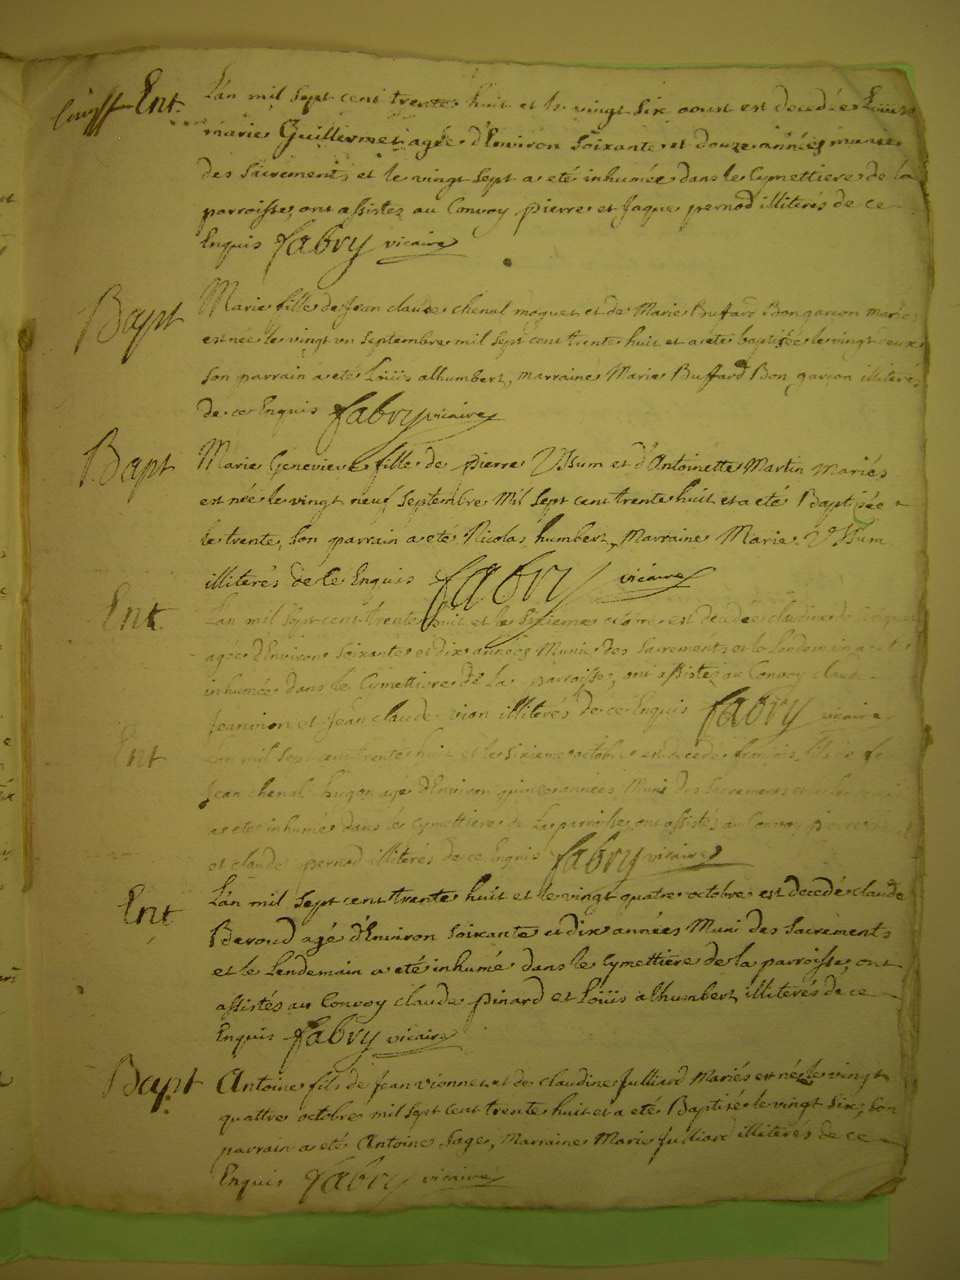 Ent. L'an mil sept cent trente huit et le vingt six aoust est decedée Louise
marie Guillermet agée d'Environ soixante et douze années munie
des Sacrements et le vingt sept a eté inhumée dans le Cymettiere de la
parroisse, ont assistez au Convoy pierre et Jaque pernod illiterés de ce
Enquis fabry vicaire
Bapt Marie fille de Jean claude chenal moguet et de Marie Buffard Bongarcon mariés
est née le vingt un Septembre mil sept cent trente huit et a eté baptisée le vingt deux
son parrain a eté Loüis alhumbert, marraine Marie Buffard Bon garcon illiterés
de ce Enquis fabry vicaire
Bapt Marie Genevieve fille de pierre Vssum et d'Antoinette Martin Mariés
est née le vingt neuf Septembre Mil sept cent trente huit et a eté Baptisée
le trente, son parrain a eté Nicolas humbert, Marraine Marie Vssum
illiterés de ce Enquis fabry vicaire
Ent. L'an mil sept cent trente huit et le sixieme octobre est decedée claudine
agée d'Environ soixante et dix années Munie des Sacrements et le Lendemain a eté
inhumée dans le Cymettiere de La parroisse, ont assistez au Convoy claude
Jeanvion et Jean claude vion illiterés de ce Enquis fabry vicaire
Ent L'an mil sept cent trente huit et le sixieme octobre est decedé françois
Jean chenal hugon agé d'Environ quinze années Muni des Sacrements et le
a eté inhumé dans le Cymettiere de La parroisse, ont assistés au Convoy pierre
et claude pernod illiterés de ce Enquis fabry vicaire
Ent L'an mil sept cent trente huit et le vingt quatre octobre est decedé claude
Beroud agé d'Environ soixante et dix années Muni des Sacrements
et le Lendemain a eté inhumé dans le Cymettiere de la parroisse, ont
assistés au Convoy claude pinard et Loüis alhumbert illiterés de ce
Enquis fabry vicaire
Bapt Antoine fils de Jean vionnet et de claudine Julliard Mariés est né le vingt
quattre octobre mil sept cent trente huit et a eté Baptisé le vingt six, son
parrain a eté Antoine Sage, Marraine Marie Julliard illiterés de ce
Enquis fabry vicaire